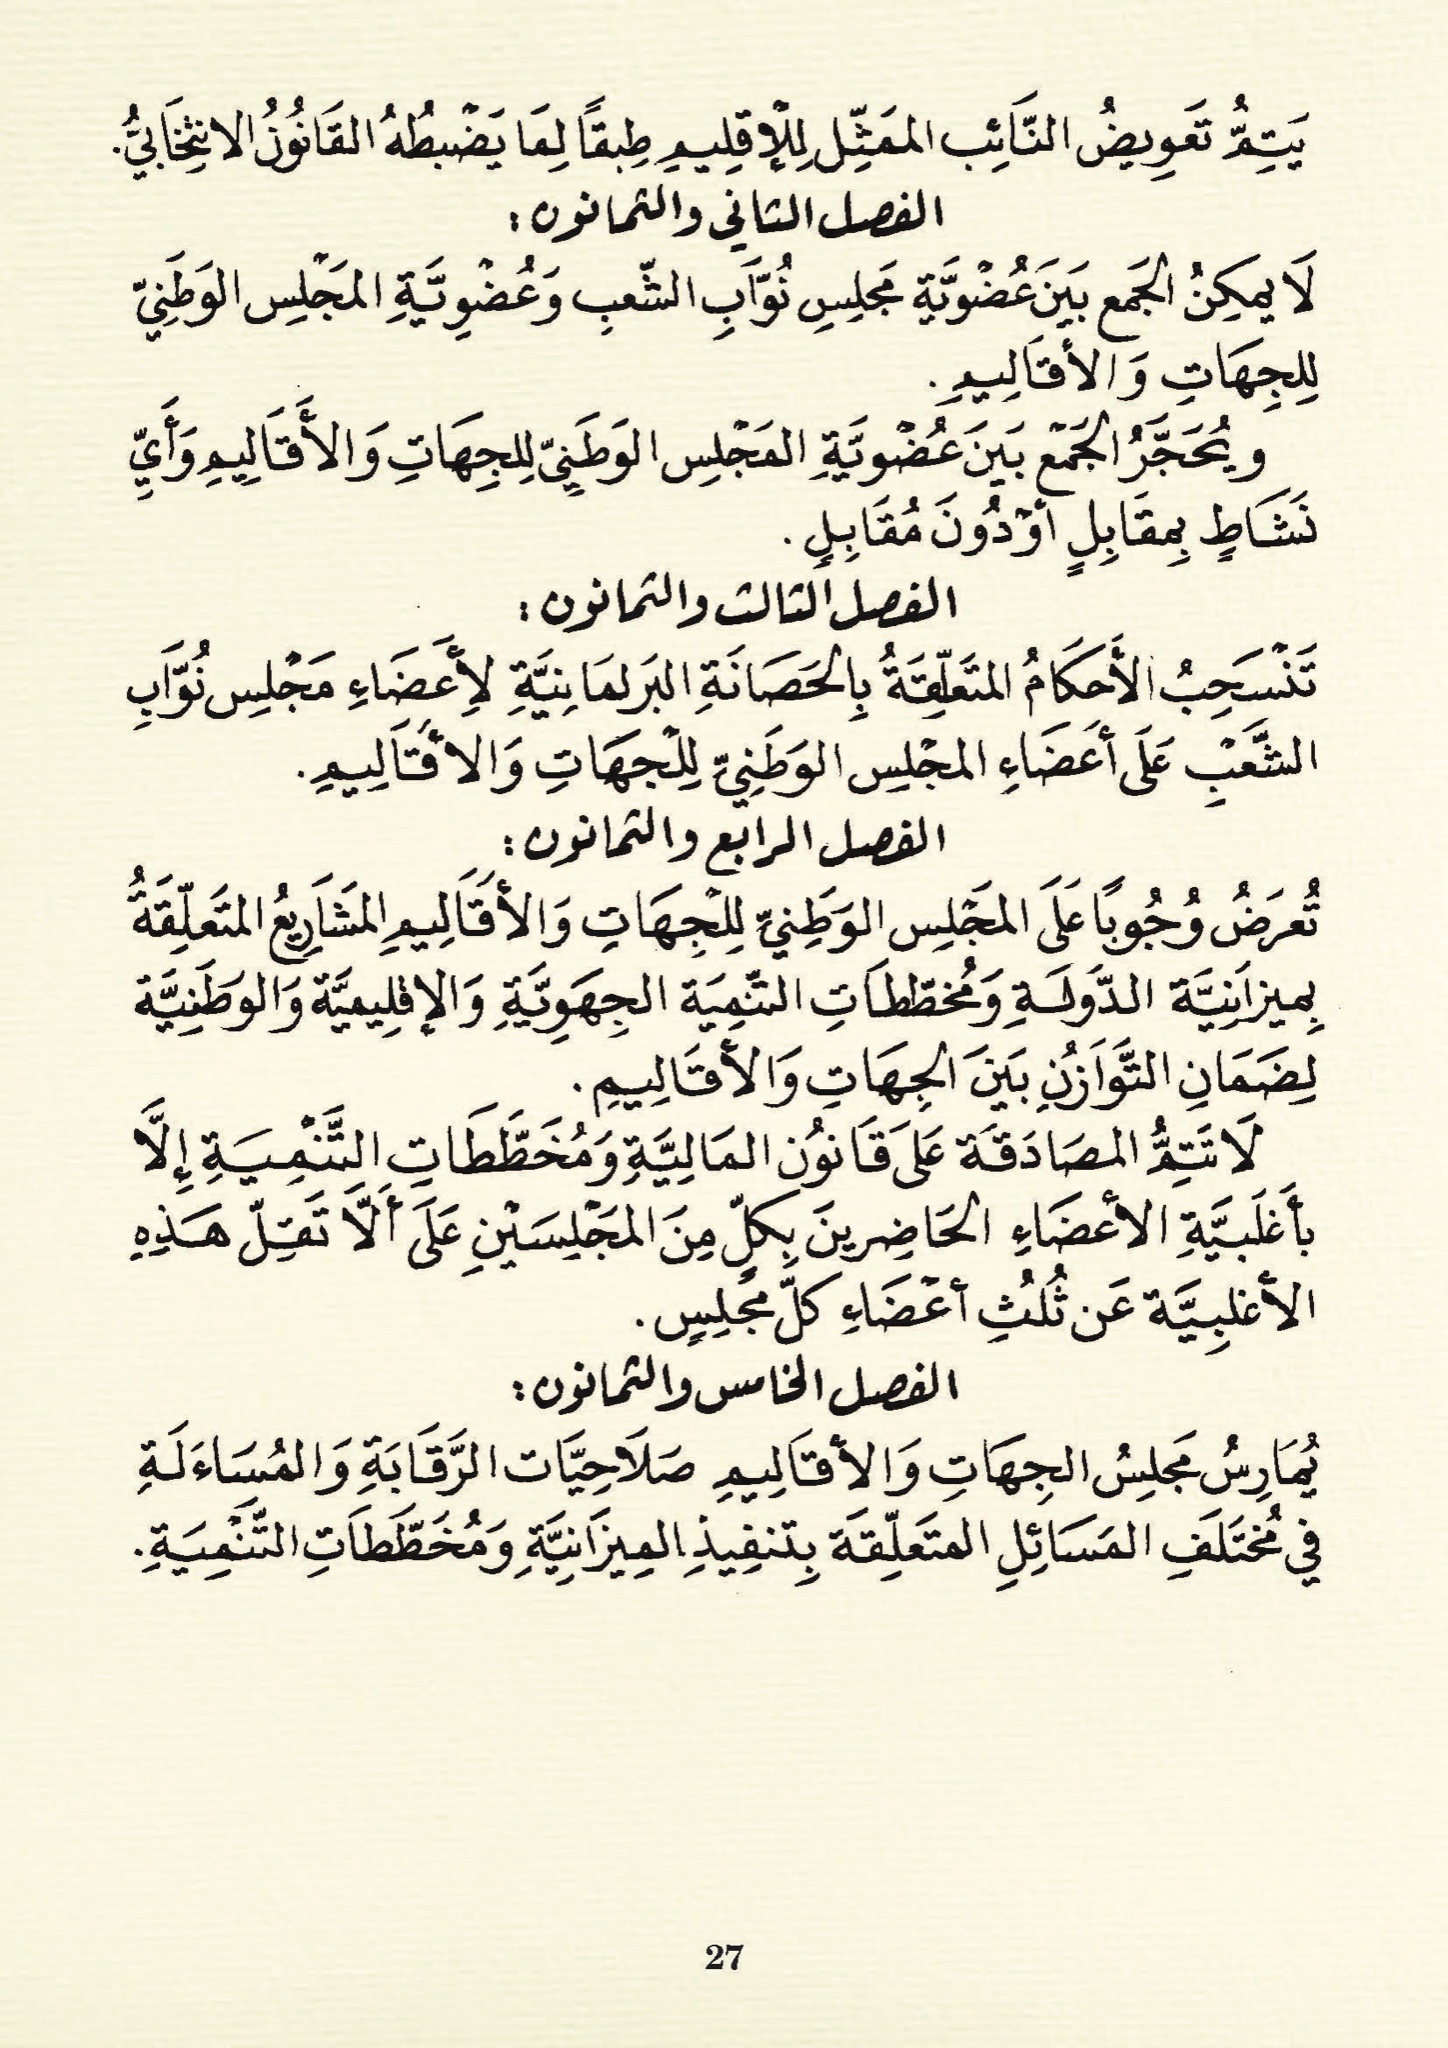 يَتِمُّ تَعَوِيضُ النَّائِب الممَثِّل لِلْإقِلِيمِ طِبقًا لِمَا يَضْبطُهُ القَانُونُ الانتِخَابيُّ.
الفصل الثاني والثمانون:
لَا يمكِنُ الجَمع بَينَ عُضْوِيَّةِ مَجلِسِ نُوَّابِ الشّعبِ وَعُضْوِيَّةِ المَجْلِس الوَطَنِيّ
لِلجِهَاتِ وَالأقَالِيمِ.
و يُحَجَّرُ الجَمْع بَينَ عُضْويَّةِ المَجْلِس الوَطَنِيّ لِلجِهَاتِ وَالأَقَالِيمِ وَأَيِّ
نَشَاطٍ بِمقَابِلٍ أوْ دُونَ مُقَابِلٍ.
الفصل الثالث والثمانون:
تَنْسَحِبُ الأحكَامُ المتَعَلِّقَةُ بِالحَصَانَةِ البَرلمَانِيَّةِ لِأَعضَاءِ مَجْلِس نُوَّابِ
الشَّعْبِ عَلَى أعَضَاءِ المجْلِس الوَطَنِيّ لِلْجهَاتِ وَالأقَالِيمِ.
الفصل الرابع والثمانون:
تُعرَضُ وُجُوبًا عَلَى المجَلِس الوَطَنِيّ لِلْجِهَاتِ وَالأقَالِيمِ المشَارِيعُ المتَعَلِّقَةُ
بِميزانِيَّة الدَّولَةِ وَمُخطّطَاتِ التّنمِيَة الجِهَوِيَّةِ وَالإقلِيميَّة وَالوطَنِيَّة
لِضَمَانِ التَّوَازُنِ بَينَ الجِهَاتِ وَالأقَالِيمِ.
لَا تَتِمُّ المصَادَقَة عَلَى قَانوُن المَالِيَّةِ وَمُخَطَّطَاتِ التَّنْمِيَةِ إِلَّا
بأَغلَبيَّةِ الأعضَاءِ الحَاضِرينَ بِكلٍّ مِنَ المجَلِسَيْنِ عَلَى أَلَّا تَقِلّ هَذِهِ
الأغلبِيَّة عَن ثُلُثِ أعْضَاءِ كلّ مجْلِسٍ.
الفصل الخامس والثمانون:
يُمَارِسُ مَجلِسُ الجِهَاتِ وَالأقَالِيمِ صَلَاحِيَّات الرَّقَابَةِ وَالمُسَاءَلَةِ
في مُختَلَفِ المَسَائِلِ المتَعَلِّقَة بِتنفِيذِ المِيزَانِيَّةِ وَمُخَطَّطَاتِ التَّنْمِيَةِ.
27